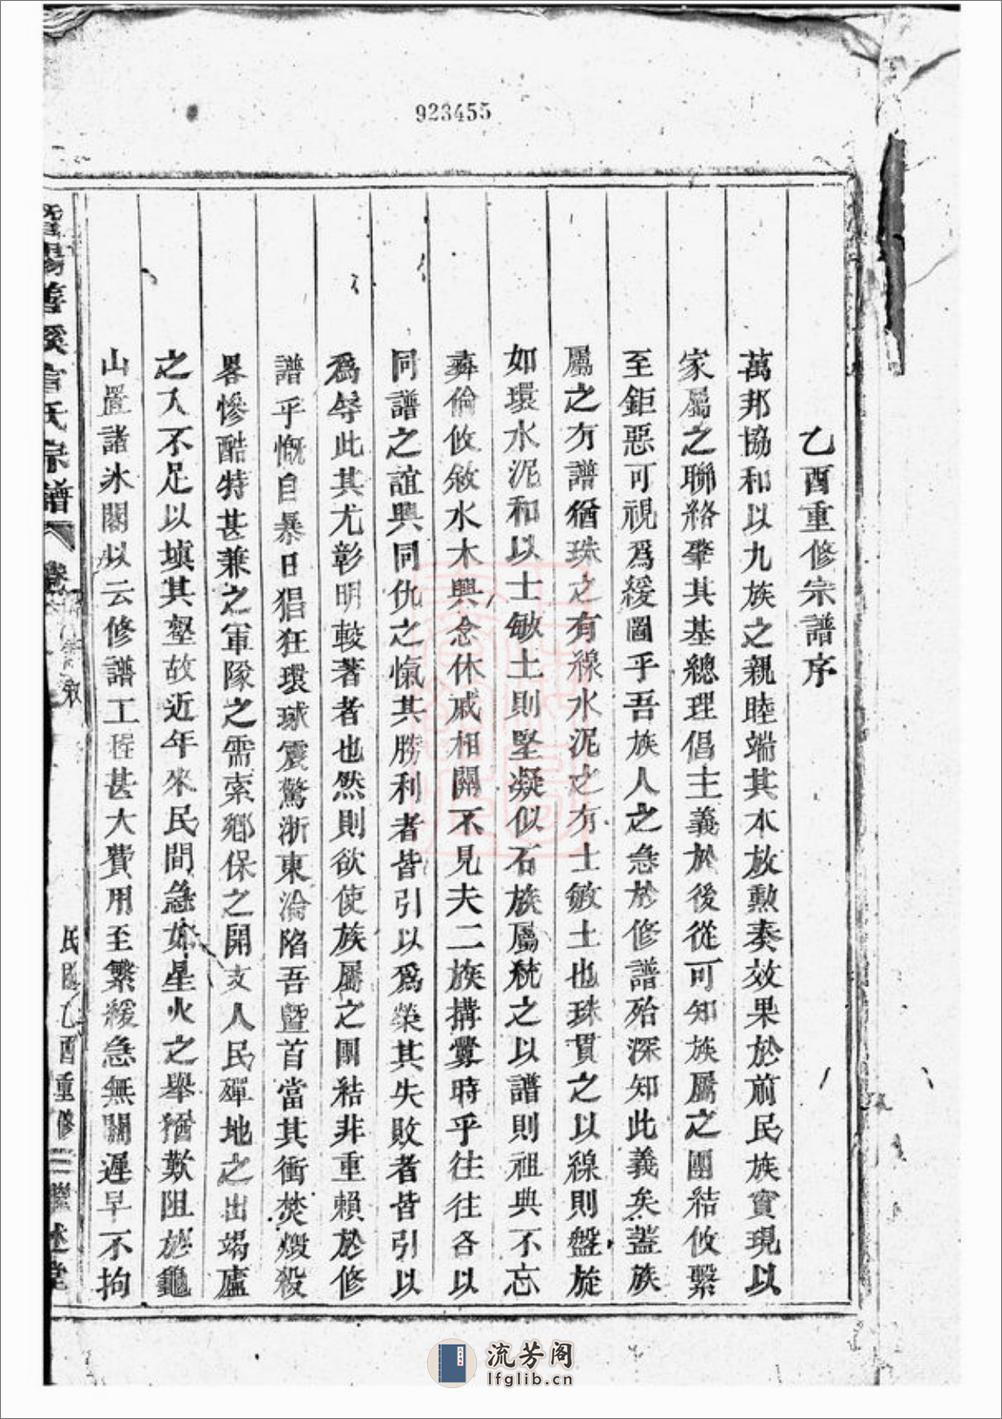 923455
乙酉重修宗譜序
萬邦協和以九族之親睦端其本放勲奏效果於前民族實現以
家屬之聯絡肇其基總理倡主義於後從可知族屬之團結攸繫
至鉅惡可視爲緩圖乎吾族人之急於修譜殆深知此義矣蓋族
屬之有譜猶珠之有線水泥之有士敏土也珠貫之以線則盤旋
如環水泥和以士敏土則堅凝似石族屬統之以譜則祖典不忘
彝倫攸敘水木興念休戚相關不見夫二族搆釁時乎往往各以
同譜之誼興同仇之愾其勝利者皆引以爲榮其失敗者皆引以
爲辱此其尤彰明較著者也然則欲使族屬之團結非重賴於修
譜乎慨自暴日猖狂環球震驚浙東淪陷吾暨首當其衝焚燬殺
畧慘酷特甚兼之軍隊之需索鄉保之開支人民殫地之出竭廬
之入不足以填其壑故近年來民間急如星火之舉猶歎阻於龜
山置諸冰閣以云修譜工程甚大費用至繁緩急無關遲早不拘
暨陽善溪宣氏宗譜 卷
民國乙酉重修 述堂
流芳阁
lfglib.cn